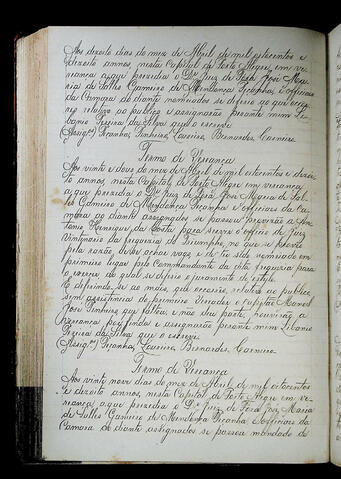 Aos dezoito dias do mez de Abril de mil oitocentos e
dezoito annos, nesta Capital de Porto Alegre em ve-
reança a que presidio o Dr. Juiz de Fora José Ma-
ria de Salles Gameiro de Mendonça Peçanha, e officiaes
da Camara ao diante nomeados se deferio ao que occor-
reo relativo ao publico e assignarão perante mim Li-
banio Pereira da Silva que o escrevi
Assig.dos Peçanha, Pinheiro, Loureiro, Bernardes, Carneiro
Termo de Vereança
Aos vinte e dous do mez de Abril de mil oitocentos e dezoi-
to annos, nesta Capital de Porto Alegre em vereança
a que presidio o Dr. Juiz de Fora José Maria de Sal-
les Gameiro de Mendonça Peçanha e officiaes da Ca-
mara ao diante assignados se passou provisão a An-
tonio Henrique da Costa para servir o officio de Juiz
Vintenario da freguezia do Triumpho, no que se proveo
pela razão de se achar vago, e de ter sido nomeado em
primeiro lugar pelo Commandante da dita freguezia para
o exercer do qual se diferio o juramento de estylo.
E deferindo-se ao mais, que occorreo relativo ao publico
sem assistencia do primeiro Vereador o capitão Manoel
José Pinheiro que faltou, e não deu parte, houverão a
Vereança por finda e assignarão perante mim Libanio
Pereira da Silva que o escrevi
Assig.dos Peçanha, Loureiro, Bernardes, Carneiro.
Termo de Vereança
Aos vinte nove dias do mez de Abril de mil oitocentos
e dezoito annos, nesta Capital de Porto Alegre em vere-
ança a que presidio o Dr. Juiz de Fora José Maria
de Salles Gameiro de Mendonça Peçanha e officiaes da
Camara ao diante assignados se passou mandado de